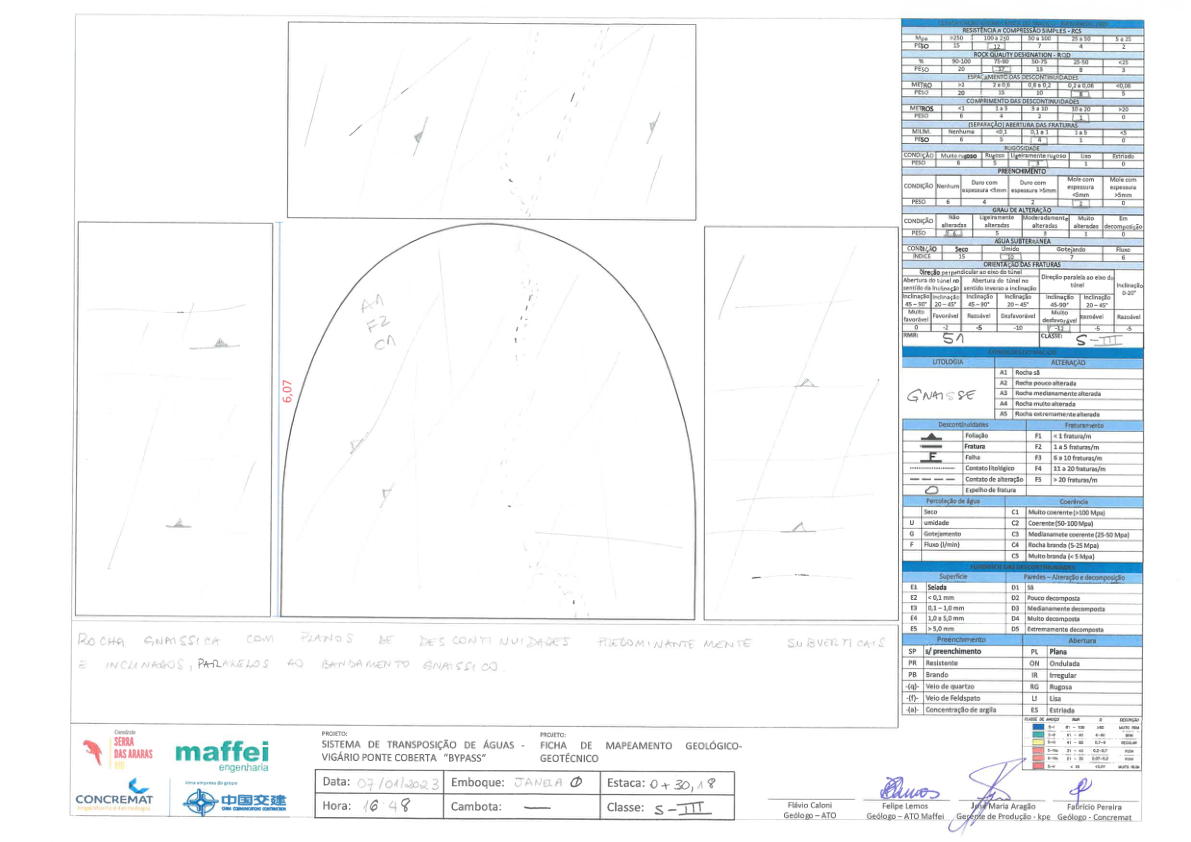 RESISTÊNCIA A COMPRESSÃO SIMPLES - RCS
Mpa >250 100 a 250 50 a 100 25 a 50 5 a 25
PESO 15 12 7 4 2
ROCK QUALITY DESIGNATION - RQD
% 90-100 75-90 50-75 25-50 <25
PESO 20 17 13 8 3
ESPAÇAMENTO DAS DESCONTINUIDADES
METRO >2 2 a 0,6 0,6 a 0,2 0,2 a 0,06 <0,06
PESO 20 15 10 8 5
COMPRIMENTO DAS DESCONTINUIDADES
METROS <1 1 a 3 3 a 10 10 a 20 >20
PESO 6 4 2 1 0
(SEPARAÇÃO) ABERTURA DAS FRATURAS
MILIM. Nenhuma <0,1 0,1 a 1 1 a 5 <5
PESO 6 5 4 1 0
RUGOSIDADE
CONDIÇÃO Muito rugoso Rugoso Ligeiramente rugoso Liso Estriado
PESO 6 5 3 1 0
PREENCHIMENTO
CONDIÇÃO Nenhum Duro com espessura <5mm Duro com espessura >5mm Mole com espessura <5mm Mole com espessura >5mm
PESO 6 4 2 2 0
GRAU DE ALTERAÇÃO
CONDIÇÃO Não alteradas Ligeiramente alteradas Moderadamente alteradas Muito alteradas Em decomposição
PESO 6 5 3 1 0
ÁGUA SUBTERRÂNEA
CONDIÇÃO Seco Úmido Gotejando Fluxo
ÍNDICE 15 10 7 6
ORIENTAÇÃO DAS FRATURAS
Direção perpendicular ao eixo do túnel Direção paralela ao eixo do túnel Inclinação 0-20°
Abertura do túnel no sentido da Inclinação Abertura do túnel no sentido inverso a inclinação
Inclinação 45 – 90° Inclinação 20 – 45° Inclinação 45 – 90° Inclinação 20 – 45° Inclinação 45-90° Inclinação 20 – 45°
Muito favorável Favorável Razoável Desfavorável Muito desfavorável Razoável Razoável
0 -2 -5 -10 -12 -5 -5
RMR: 51 CLASSE: S-III
LITOLOGIA ALTERAÇÃO
GNAISSE
A1 Rocha sã
A2 Rocha pouco alterada
A3 Rocha medianamente alterada
A4 Rocha muito alterada
A5 Rocha extremamente alterada
Descontinuidades Fraturamento
Foliação F1 < 1 fratura/m
Fratura F2 1 a 5 fraturas/m
F Falha F3 6 a 10 fraturas/m
Contato litológico F4 11 a 20 fraturas/m
Contato de alteração F5 > 20 fraturas/m
Espelho de fratura
Percolação de água Coerência
Seco C1 Muito coerente (>100 Mpa)
U umidade C2 Coerente (50-100 Mpa)
G Gotejamento C3 Medianamete coerente (25-50 Mpa)
F Fluxo (l/min) C4 Rocha branda (5-25 Mpa)
C5 Muito branda (< 5 Mpa)
Superfície Paredes – Alteração e decomposição
E1 Selada D1 Sã
E2 < 0,1 mm D2 Pouco decomposta
E3 0,1 – 1,0 mm D3 Medianamente decomposta
E4 1,0 a 5,0 mm D4 Muito decomposta
E5 > 5,0 mm D5 Extremamente decomposta
Preenchimento Abertura
SP s/ preenchimento PL Plana
PR Resistente ON Ondulada
PB Brando IR Irregular
-(q)- Veio de quartzo RG Rugosa
-(f)- Veio de Feldspato LI Lisa
-(a)- Concentração de argila ES Estriada
A1
F2
C1
6,07
ROCHA GNAISSICA COM PLANOS DESCONTINUIDADES PREDOMINANTEMENTE SUBVERTICAIS
E INCLINADOS, PARALELOS AO BANDAMENTO GNAISSICO.
SERRA DAS ARARAS
maffei
engenharia
CONCREMAT
中国交建
CHINA COMMUNICATIONS CONSTRUCTION
PROJETO:
SISTEMA DE TRANSPOSIÇÃO DE ÁGUAS -
VIGÁRIO PONTE COBERTA "BYPASS"
PROJETO:
FICHA DE MAPEAMENTO GEOLÓGICO-
GEOTÉCNICO
Data: 07/01/2023 Emboque: JANELA Estaca: 0+30,18
Hora: 16:48 Cambota: — Classe: S-III
Flávio Caloni
Geólogo – ATO
Felipe Lemos
Geólogo – ATO Maffei
José Maria Aragão
Gerente de Produção - kpe
Fabrício Pereira
Geólogo - Concremat